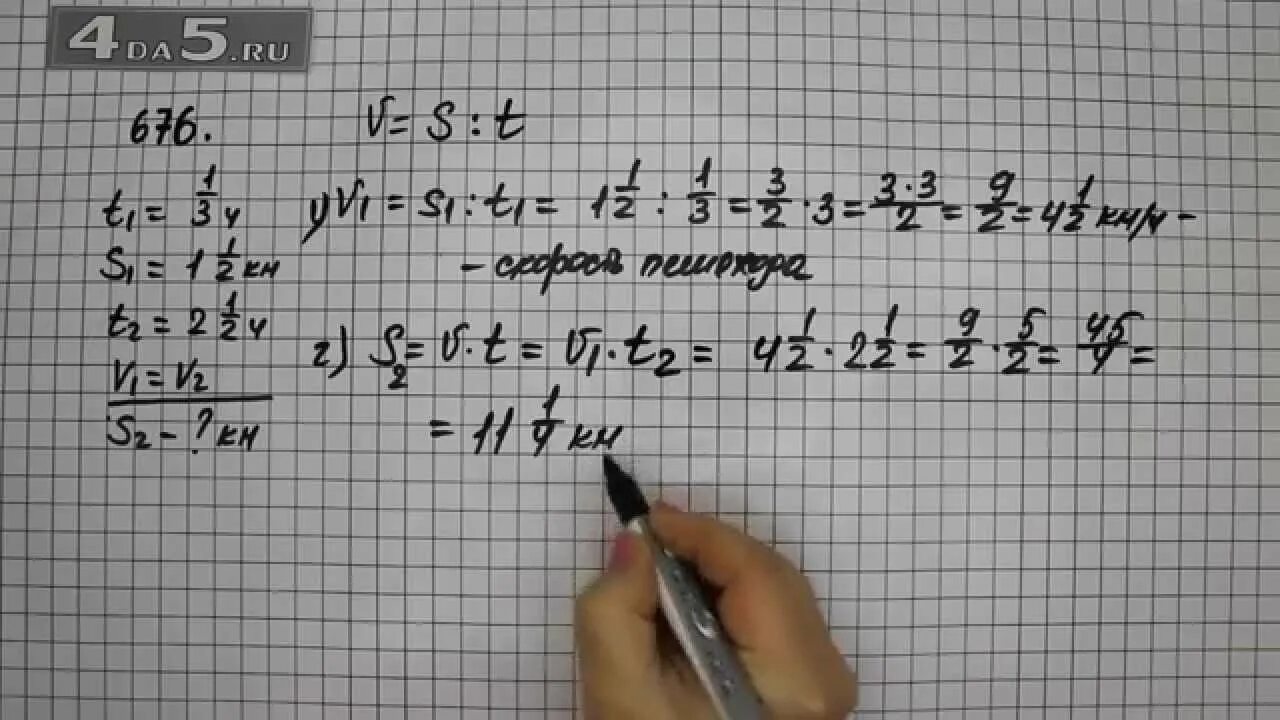 4DA5.RU
676.
V = S : t
t₁ = 1/3 ч
S₁ = 1 1/2 км
t₂ = 2 1/2 ч
V₁ = V₂
S₂ - ? км
1) V₁ = S₁ : t₁ = 1 1/2 : 1/3 = 3/2 · 3 = 3·3/2 = 9/2 = 4 1/2 км/ч -
- скорость пешехода
2) S₂ = V · t = V₁ · t₂ = 4 1/2 · 2 1/2 = 9/2 · 5/2 = 45/4 =
= 11 1/4 км